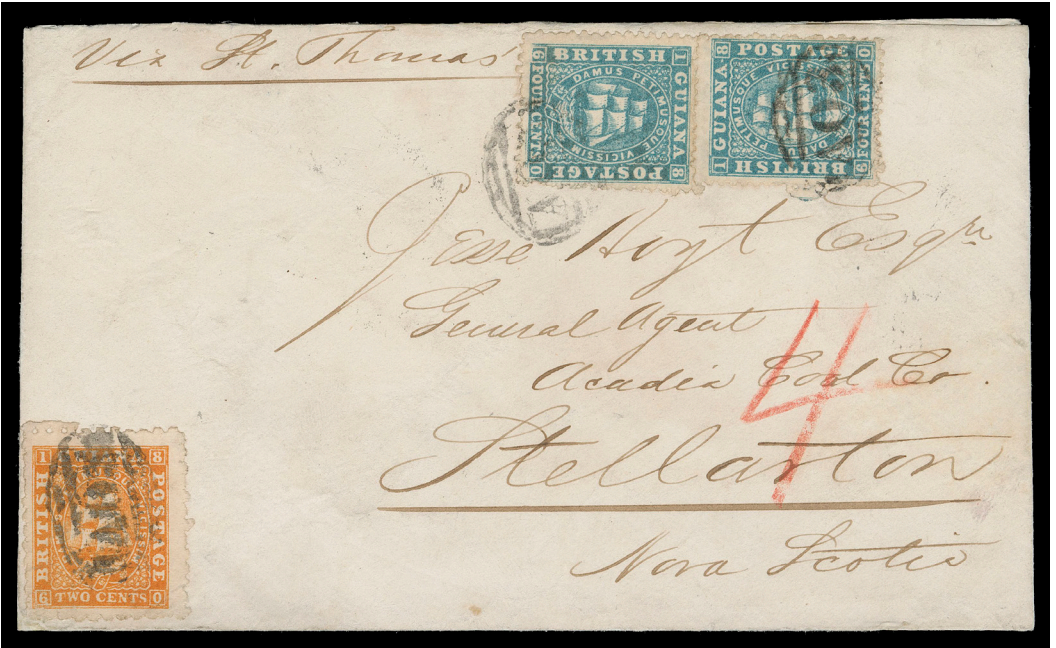 Via St. Thomas
BRITISH
GUIANA
POSTAGE
FOUR CENTS
1 8 6 0
DAMUS PETIMUSQUE VICISSIM
POSTAGE
GUIANA
BRITISH
FOUR CENTS
1 8 6 0
PETIMUSQUE
Jesse Hoyt Esqre
General Agent
Acadia Coal Co.
4
Stellarton
Nova Scotia
1 8
BRITISH
POSTAGE
6 TWO CENTS 0